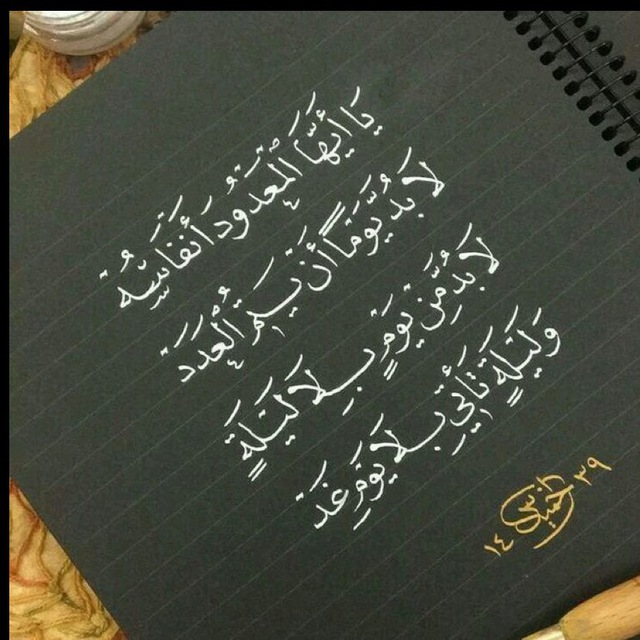 يَا أَيُّهَا الْمَعْدُودُ أَنفَاسُهُ
لَا بُدَّ يَوْمًا أَن يَتِمَّ الْعَدَدَ
لَا بُدَّ مِّن يَوْمٍ بِلَا لَيْلَةٍ
وَلَيْلَةٍ تَأْتِي بِلَا يَوْمِ غَد
١٤ ٣٩